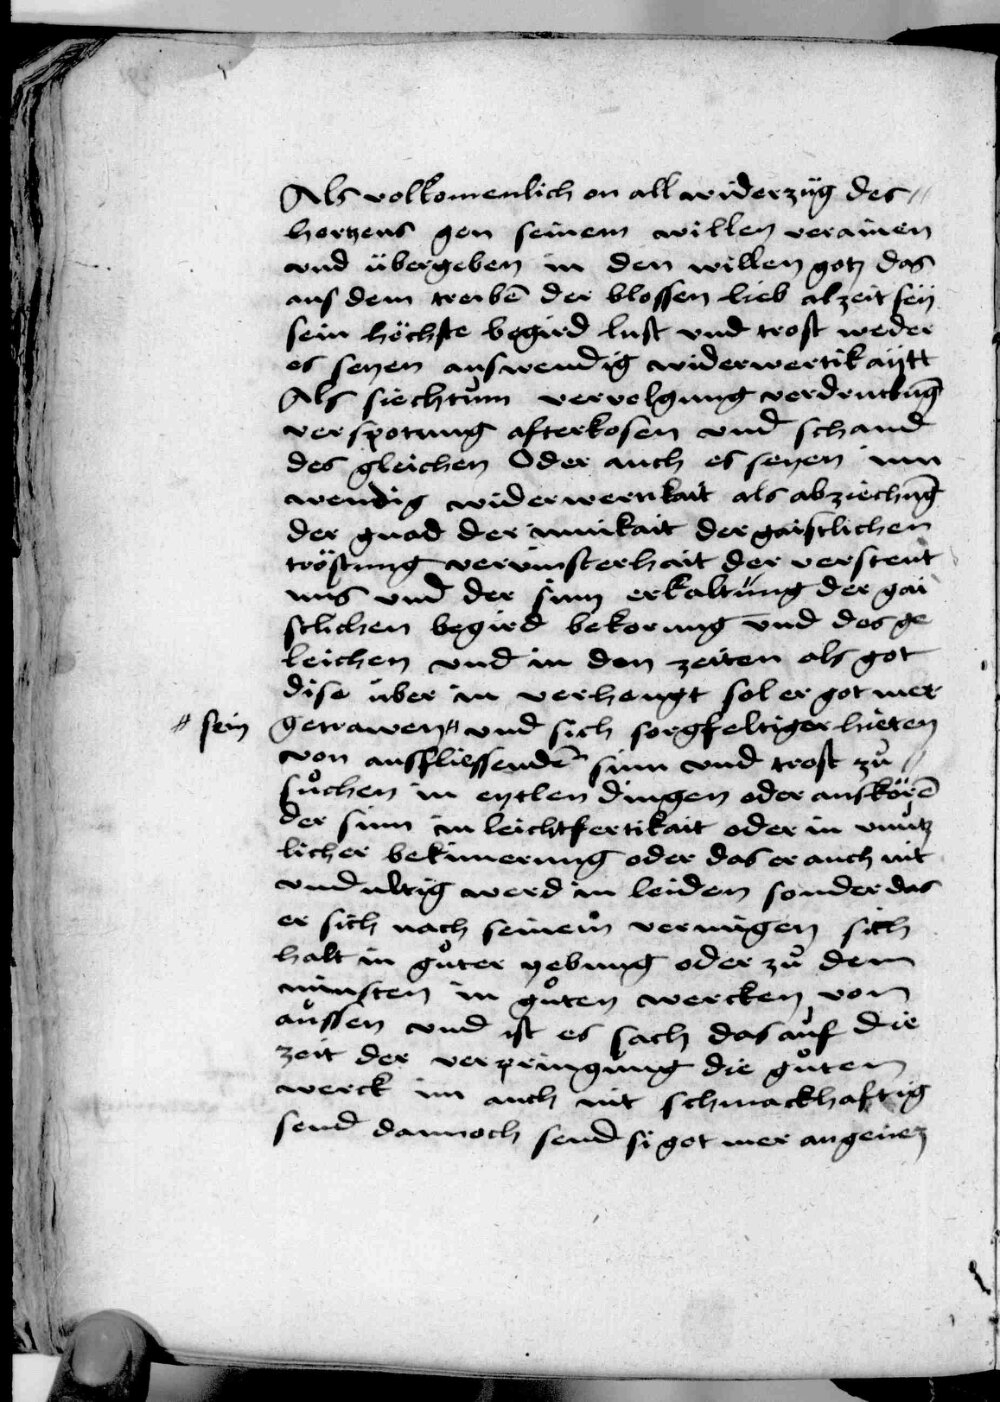 Als volkomenlich on all widerzüg des //
hertzens gen seinem willen verainen
vnd übergeben in den willen gotz das
aus dem treibē der blossen lieb alzeit seÿ
sein höchste begird lust vnd trost weder
es seyen auswendig widerwertikaÿtt
Als siechtům vervolgung verdruckūg
verspotung afterkosen vnd schand
des gleichen Oder auch es seyen inn
wendig widerwertikait als abziechūg
der gnad der innikait der gaistlichen
tröstung vervinsterhait der verstent
nus vnd der sinn erkaltung der gai
stlichen begird bekorung vnd des ge
leichen vnd in den zeiten als got
dise über in verhengt sol er got mer
# sein getrawen # vnd sich sorgfeltiger hieten
von ausfliessendē sinn vnd trost zů //
sůchen in eytlen dingen oder auskörē
der sinn in leichtfertikait oder in vnutz
licher bekimerung oder das er auch nit
vndultig werd in leiden sonder das
er sich nach seinem vermigen sich
halt in gůter yebung oder zů dem
minsten in gůten wercken von
aussen vnd ist es sach das auf die
zeit der verpringung die gůten
werck im auch nit schmackhaftig
send dannoch send si got mer angenez